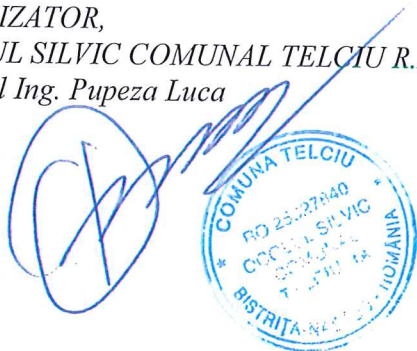 IZATOR,
UL SILVIC COMUNAL TELCIU R.
l Ing. Pupeza Luca
COMUNA TELCIU
OCOLUL SILVIC
BISTRIȚA
ROMÂNIA